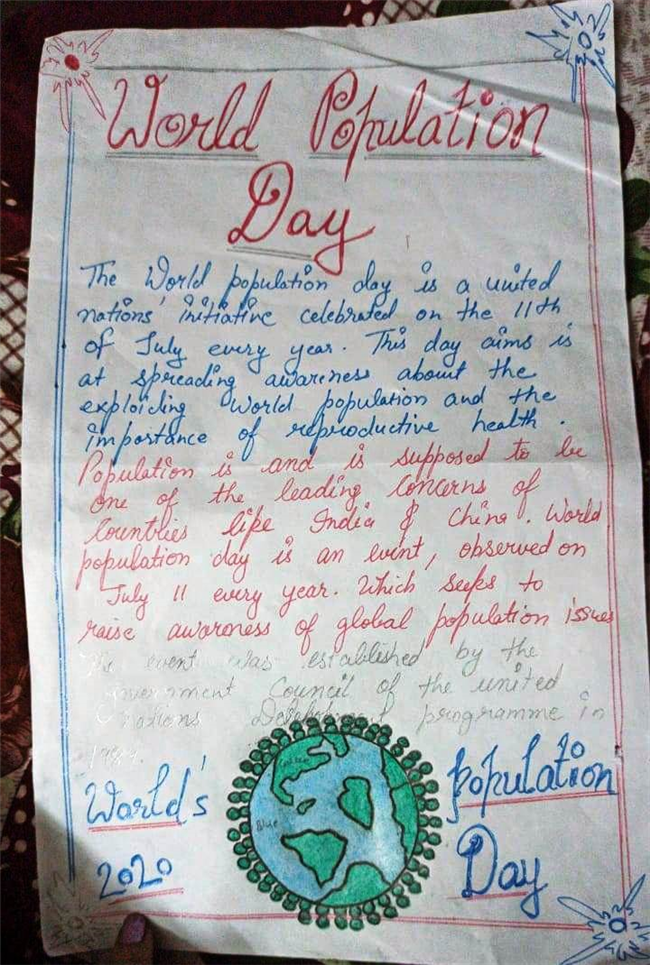 World Population
Day
The World population day is a united
nations' initiative celebrated on the 11th
of July every year. This day aims is
at spreading awareness about the
exploiding World population and the
importance of reproductive health.
Population is and is supposed to be
one of the leading Concerns of
Countries like India & China. World
population day is an event, observed on
July 11 every year. Which seeks to
raise awareness of global population issues
The event was established by the
Government Council of the united
Nations Development programme in
World's population
2020 Day
Green
Blue